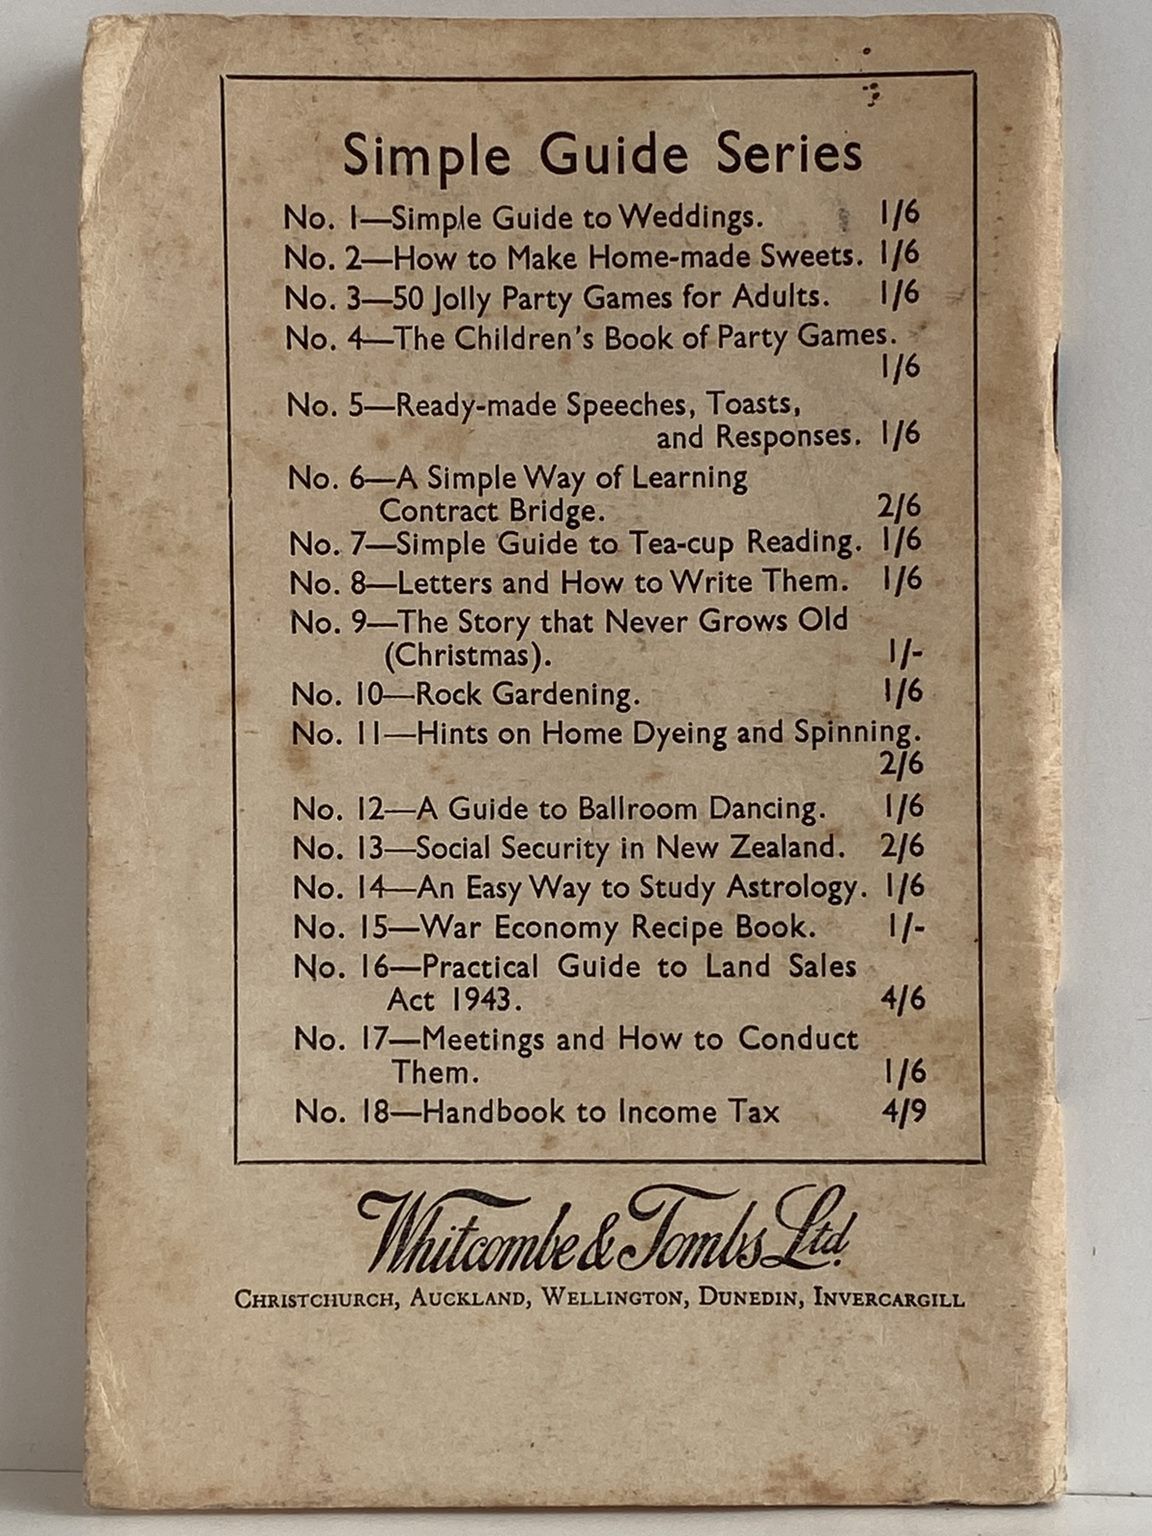 Simple Guide Series
No. 1—Simple Guide to Weddings. 1/6
No. 2—How to Make Home-made Sweets. 1/6
No. 3—50 Jolly Party Games for Adults. 1/6
No. 4—The Children's Book of Party Games.
1/6
No. 5—Ready-made Speeches, Toasts,
and Responses. 1/6
No. 6—A Simple Way of Learning
Contract Bridge. 2/6
No. 7—Simple Guide to Tea-cup Reading. 1/6
No. 8—Letters and How to Write Them. 1/6
No. 9—The Story that Never Grows Old
(Christmas). 1/-
No. 10—Rock Gardening. 1/6
No. 11—Hints on Home Dyeing and Spinning.
2/6
No. 12—A Guide to Ballroom Dancing. 1/6
No. 13—Social Security in New Zealand. 2/6
No. 14—An Easy Way to Study Astrology. 1/6
No. 15—War Economy Recipe Book. 1/-
No. 16—Practical Guide to Land Sales
Act 1943. 4/6
No. 17—Meetings and How to Conduct
Them. 1/6
No. 18—Handbook to Income Tax 4/9
Whitcombe & Tombs Ltd.
CHRISTCHURCH, AUCKLAND, WELLINGTON, DUNEDIN, INVERCARGILL